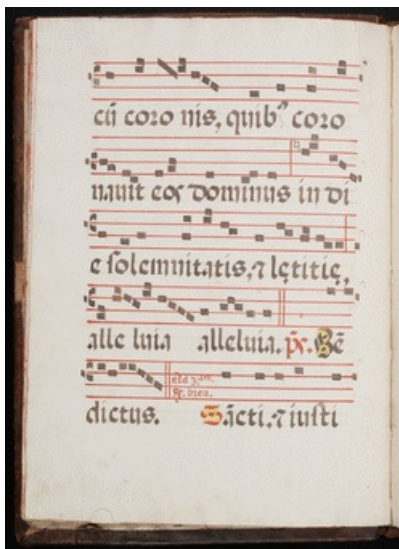 cū coro nis, quibꝰ coro
nauit eos dominus in di
e solemnitatis, ⁊ lętitię,
alle luia alleluia. p̄s. Bē
dictus. Sācti, ⁊ iusti